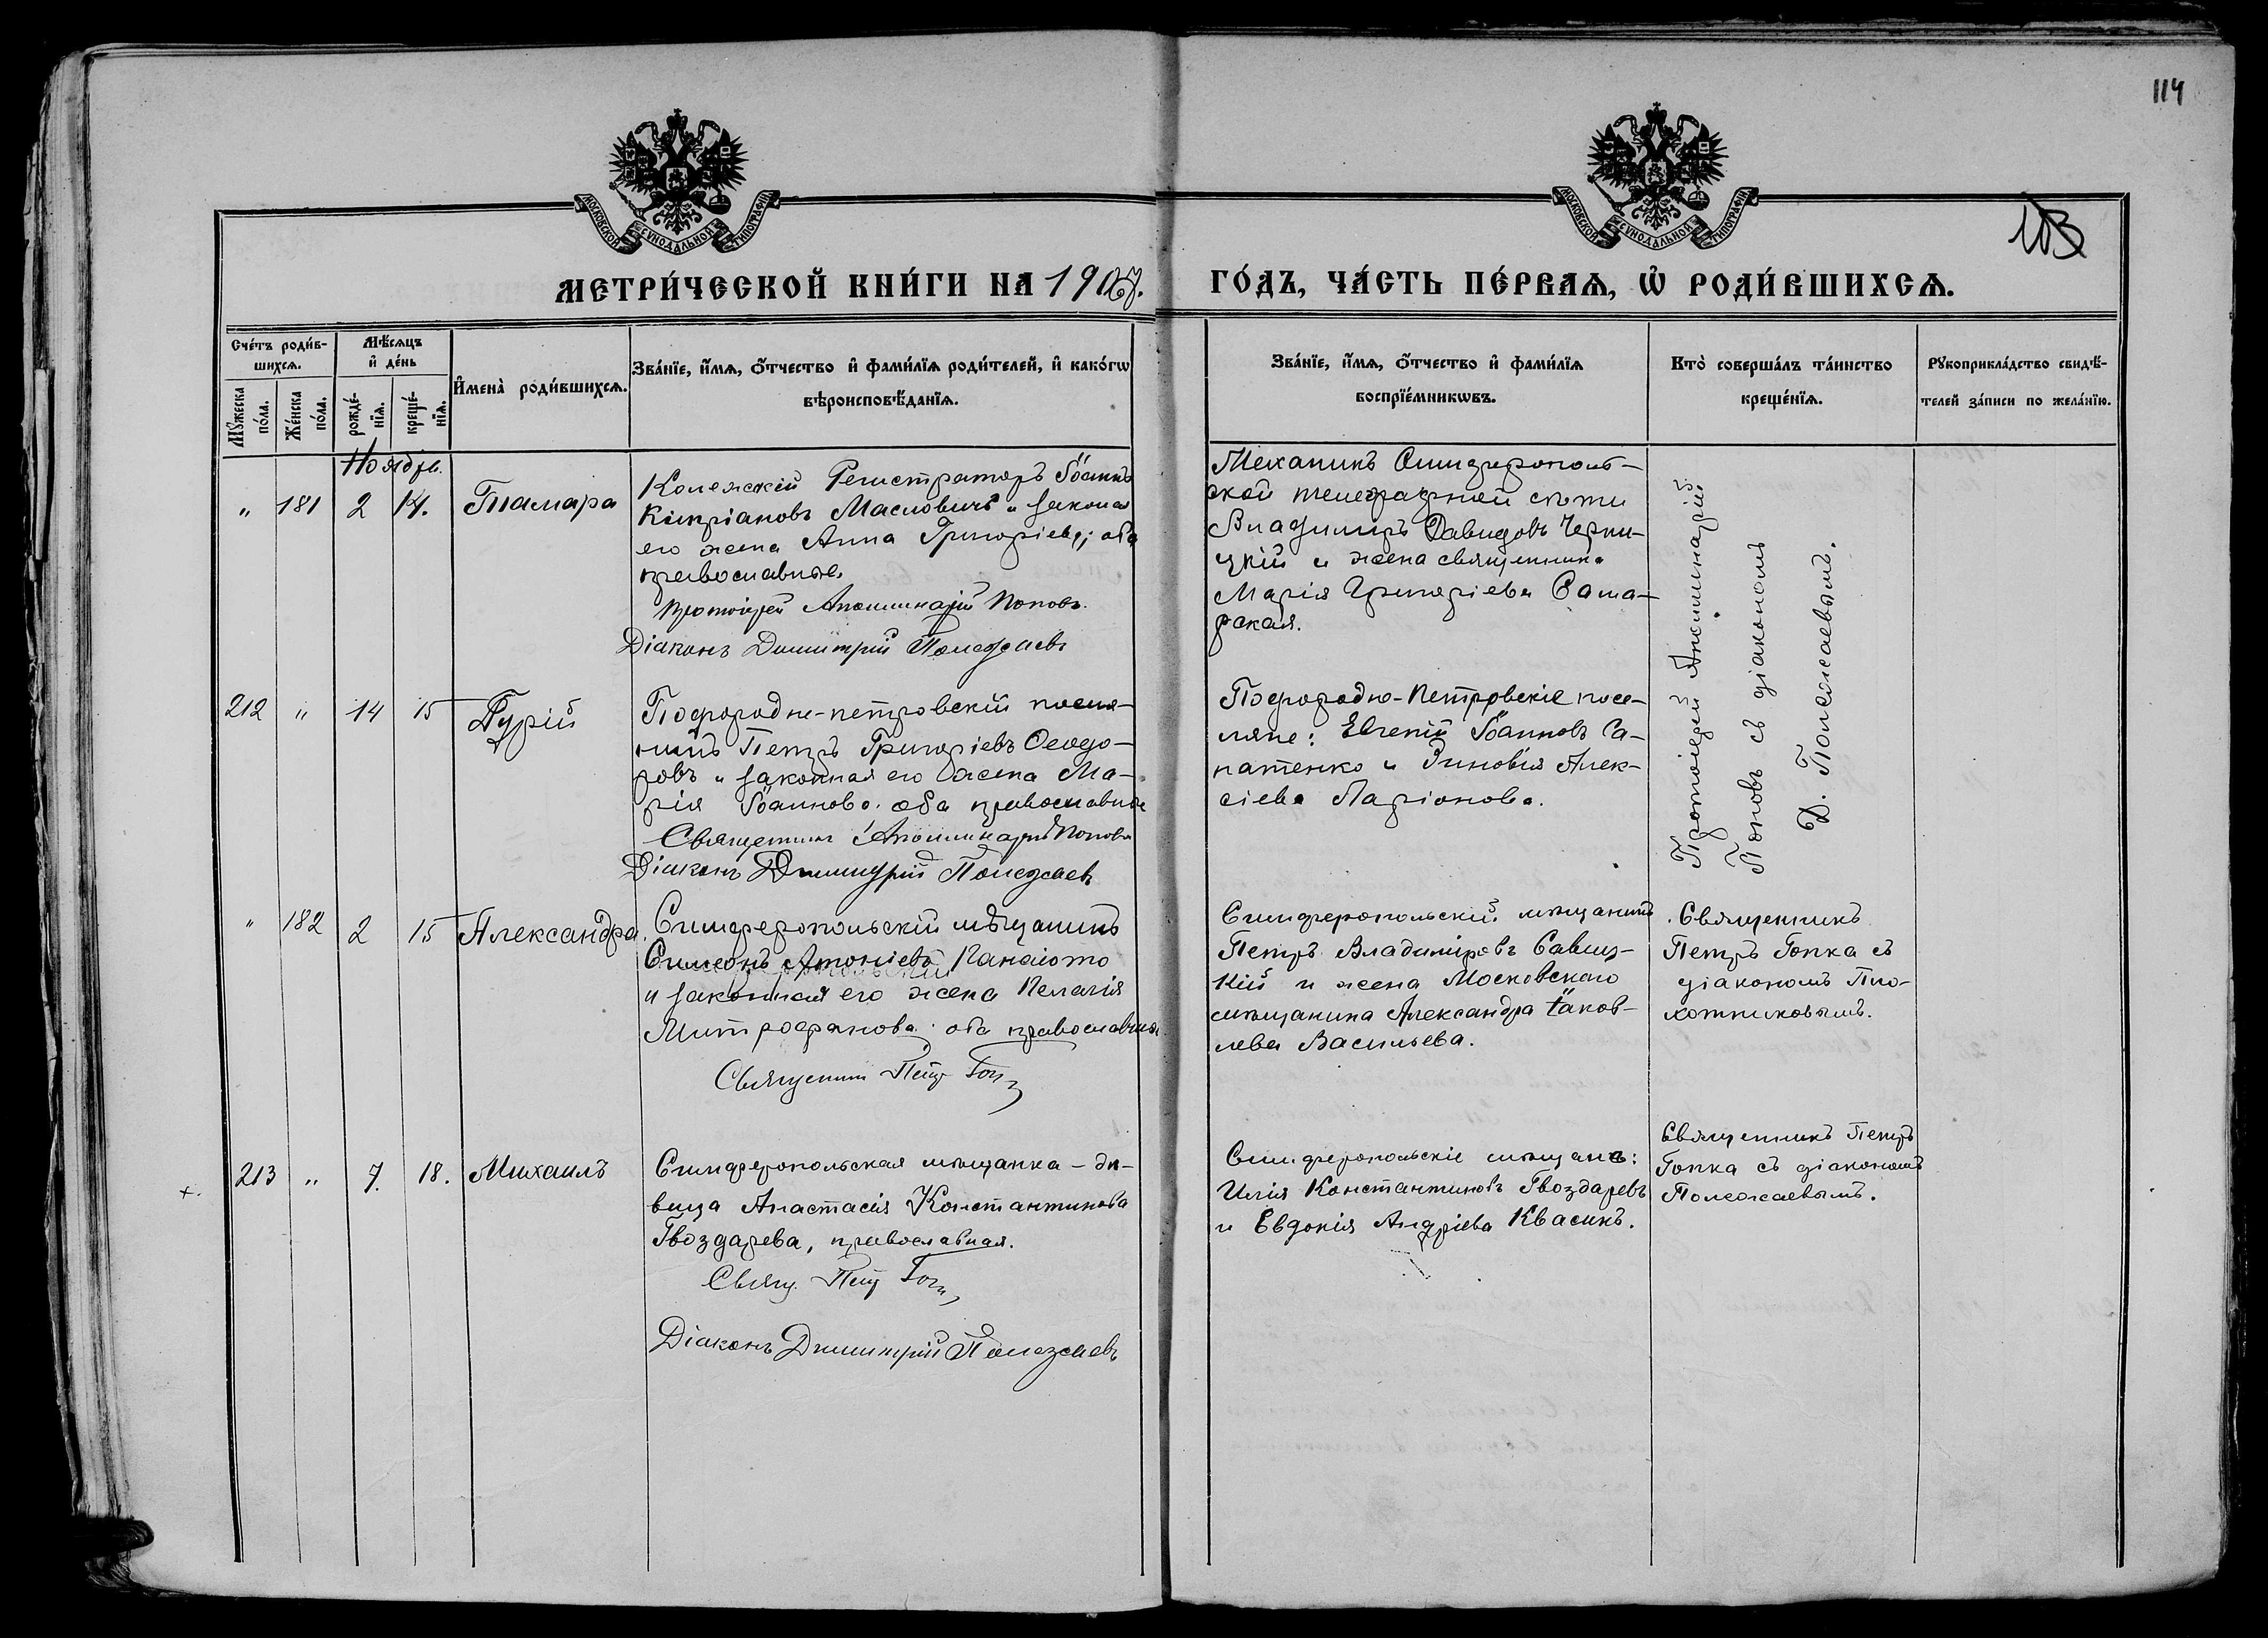 114
МОСКОВСКОЙ СѴНОДАЛЬНОЙ ТИПОГРАФІИ
МОСКОВСКОЙ СѴНОДАЛЬНОЙ ТИПОГРАФІИ
103
МЕТРИ́ЧЕСКОЙ КНИ́ГИ НА 1907. ГО́ДЪ, ЧА́СТЬ ПЕ́РВАѦ, Ѽ РОДИ́ВШИХСѦ.
Сче́тъ роди́в-
шихсѧ.
Мꙋ́жеска по́ла.
Же́нска по́ла.
Мѣ́сѧцъ
и҆ де́нь
рожде́-
нїѧ.
креще́-
нїѧ.
И҆мена̀ роди́вшихсѧ.
Зва́нїе, и҆́мѧ, ѻ҆́тчество и҆ фами́лїѧ роди́телей, и҆ како́гѡ
вѣроисповѣ́данїѧ.
Зва́нїе, и҆́мѧ, ѻ҆́тчество и҆ фами́лїѧ
воспрїе́мникѡвъ.
Кто̀ соверша́лъ та́инство
креще́нїѧ.
Рꙋкоприкла́дство свидѣ́-
телей за́писи по жела́нїю.
Ноябрь.
" 181 2 14. Тамара
Колежскій Регистраторъ Іоаннъ
Кипріановъ Масловичъ и законая
его жена Анна Григоріева; оба
православные.
Протоіерей Аполлинарій Поповъ.
Діаконъ Димитрій Полежаевъ
Механикъ Симферополь-
ской телеграфной сѣти
Владимиръ Давидовъ Черни-
цкій и жена священника
Марія Григоріева Сама-
рская.
Протоіерей Аполлинарій
Поповъ съ діакономъ
Д. Полежаевымъ.
212 " 14 15 Гурій
Подгородне-петровскій поселя-
нинъ Петръ Григоріевъ Ѳеодо-
ровъ и законная его жена Ма-
рія Іоаннова. оба православные
Священникъ Аполлинарій Поповъ
Діаконъ Димитрій Полежаевъ
Подгородно-Петровскіе посе-
ляне: Евгеній Іоанновъ Са-
патенко и Зиновія Алек-
сіева Ларіонова.
" 182 2 15 Александра
Симферопольскій мѣщанинъ
Симеонъ Антоніевъ Панаіото
и законная его жена Пелагія
Митрофанова. оба православные.
Священникъ Петръ Гопка
Симферопольскій мѣщанинъ
Петръ Владиміровъ Савиц-
кій и жена Московскаго
мѣщанина Александра Іаков-
лева Васильева.
Священникъ
Петръ Гопка съ
діакономъ Пло-
хотниковымъ.
+. 213 " 7. 18. Михаилъ
Симферопольская мѣщанка - дѣ-
вица Анастасія Константинова
Гвоздарева, православная.
Свящ. Петръ Гопка
Діаконъ Димитрій Полежаевъ
Симферопольскіе мѣщане:
Илія Константиновъ Гвоздаревъ
и Евдокія Андріева Квасинъ.
Священникъ Петръ
Гопка съ діакономъ
Полежаевымъ.